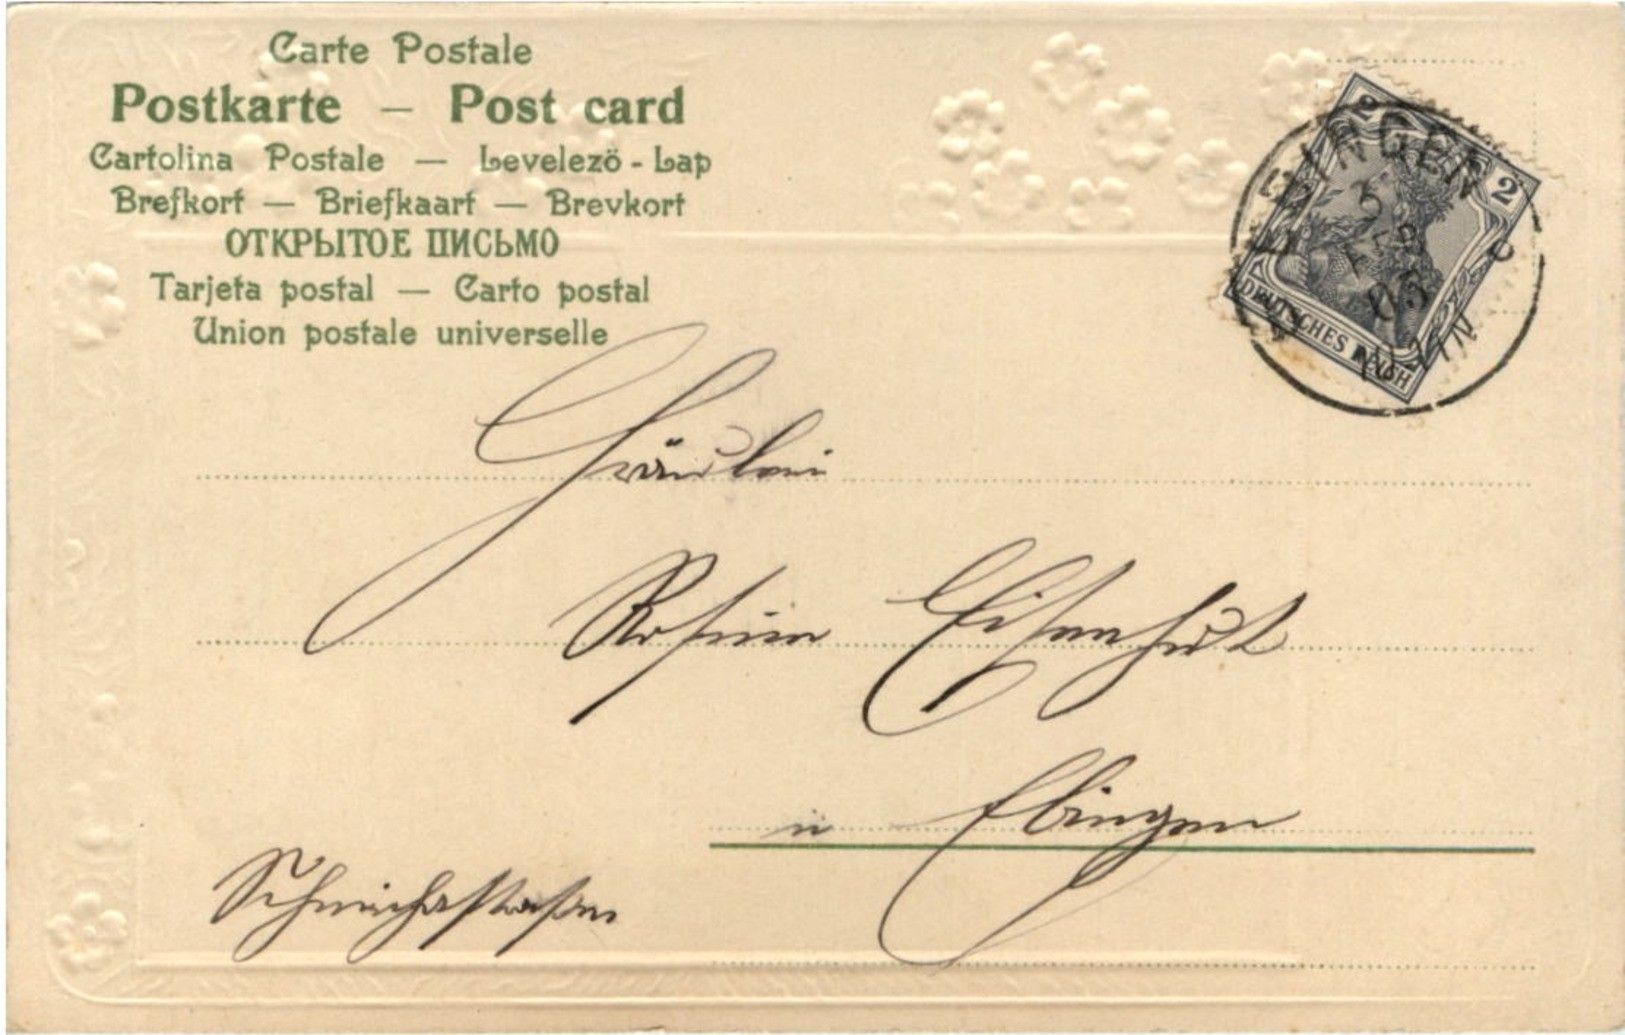 Carte Postale
Postkarte — Post card
Cartolina Postale — Levelező - Lap
Brefkort — Briefkaart — Brevkort
ОТКРЫТОЕ ПИСЬМО
Tarjeta postal — Carto postal
Union postale universelle
2 2
DEUTSCHES REICH
EBINGEN
3
FEB
05
Fräulein
Rosine Eisenhut
in Ebingen
Schmiechastraße